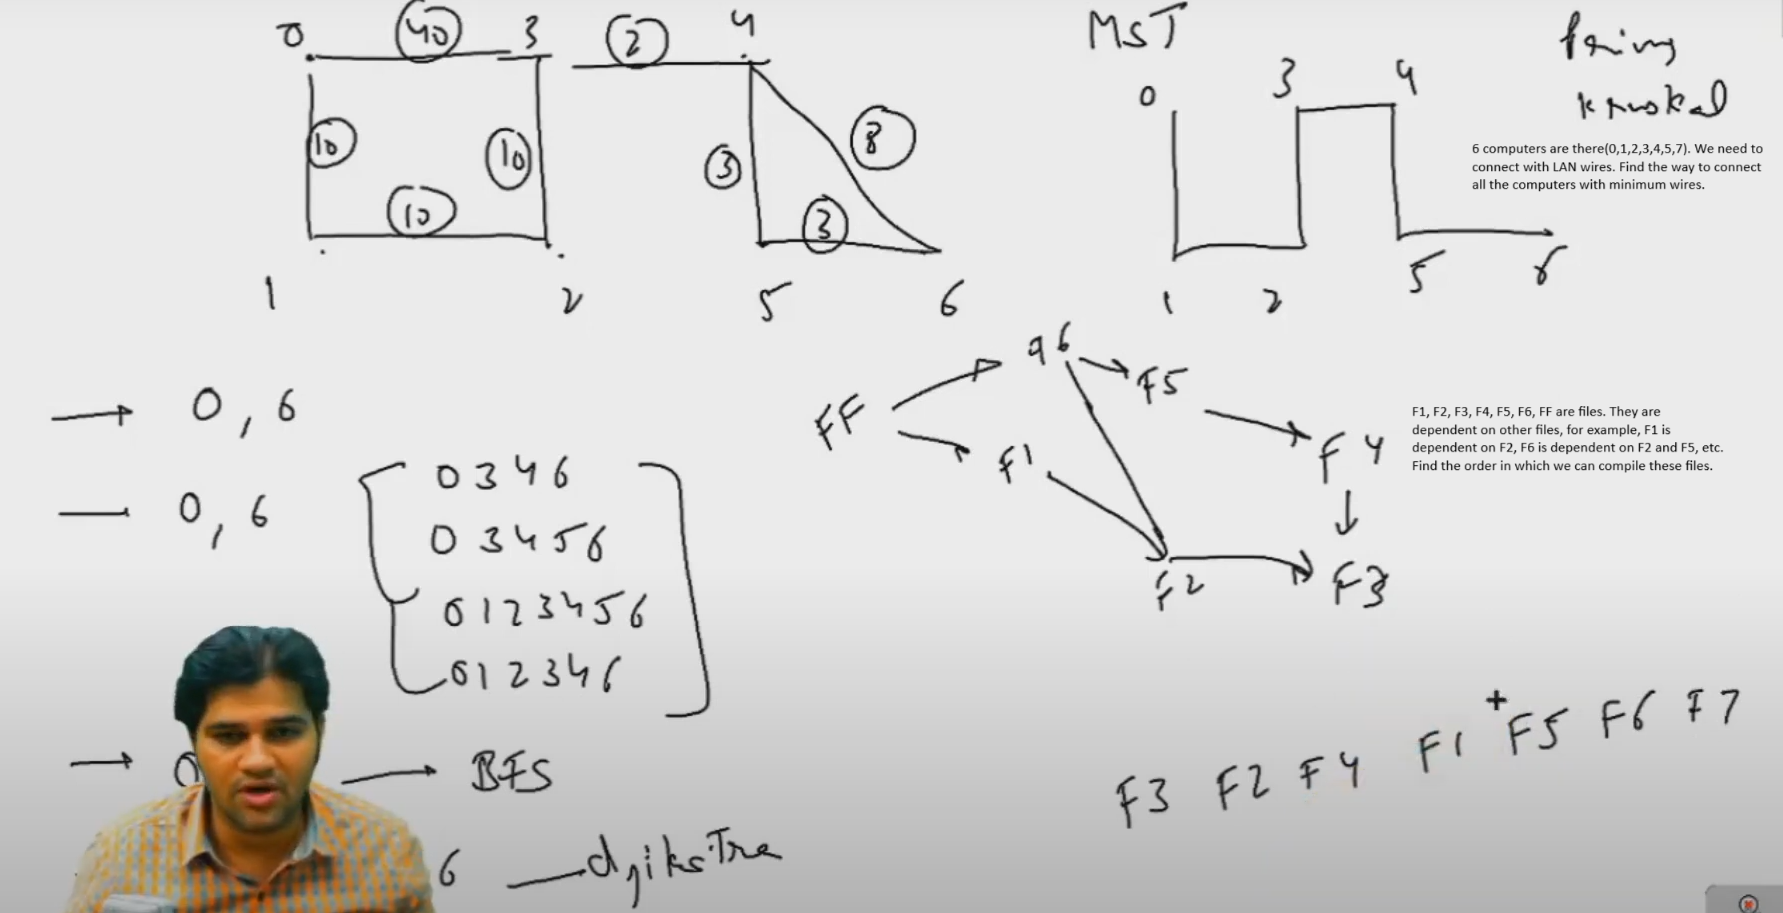 0 40 3 2 4
10 10 3 8
10 3
1 2 5 6
MST
0 3 4
1 2 5 6
Prims
kruskal
6 computers are there(0,1,2,3,4,5,7). We need to
connect with LAN wires. Find the way to connect
all the computers with minimum wires.
→ 0, 6
— 0, 6
0 3 4 6
0 3 4 5 6
0 1 2 3 4 5 6
0 1 2 3 4 6
→ 0 → BFS
6 — djikstra
FF
F5
F1
F4
F2
F3
F1, F2, F3, F4, F5, F6, FF are files. They are
dependent on other files, for example, F1 is
dependent on F2, F6 is dependent on F2 and F5, etc.
Find the order in which we can compile these files.
F3 F2 F4 F1 F5 F6 F7